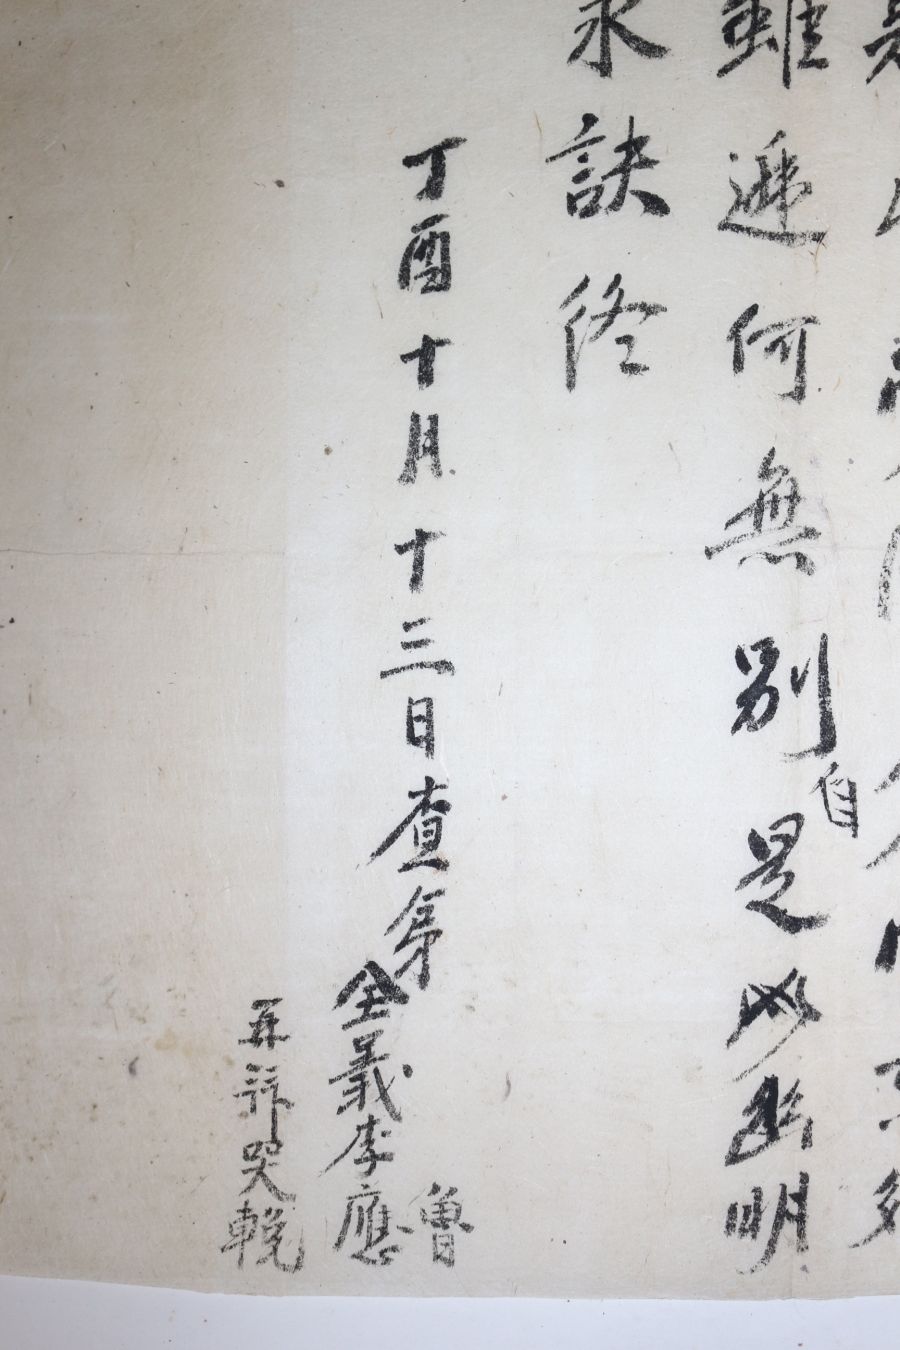 雖遞何無別自是以幽明
永訣終
丁酉十月十三日査弟
全義李應魯
再拜哭輓